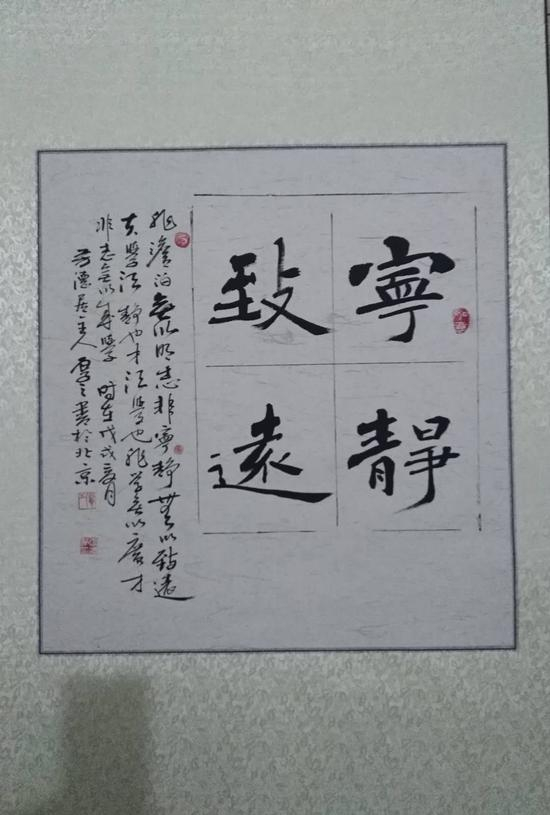 寧靜
致遠
非澹泊無以明志非寧靜無以致遠
夫學須靜也才須學也非學無以廣才
非志無以成學 時在戊戌
德居主人 書於北京